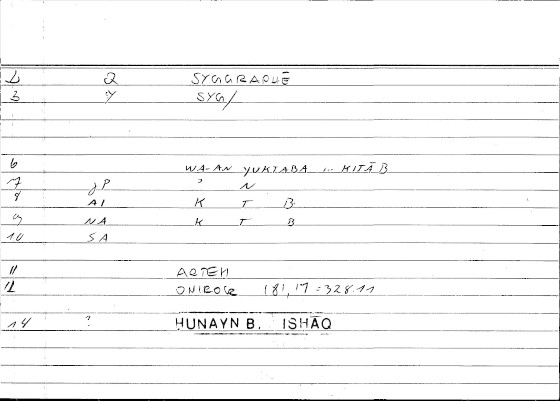 1 2 SYGGRAPHĒ
3 7 SYG/
6 WA-AN YUKTABA ... KITĀB
7 JP ʾ N
8 AI K T B
9 NA K T B
10 SA
11 ARTEM
12 ONIROCR 181,17 = 328.11
14 ? HUNAYN B. ISHĀQ